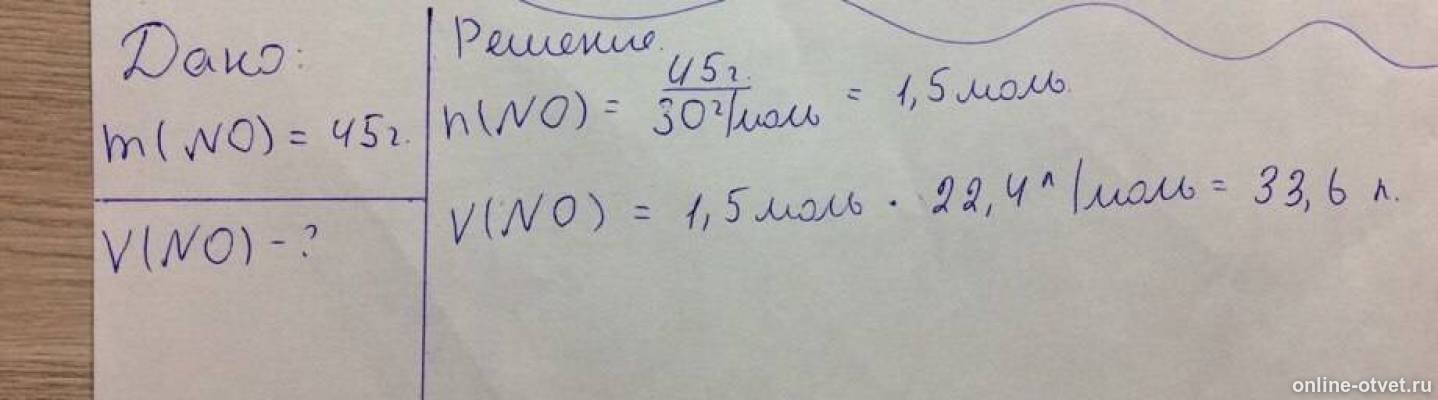 Дано:
m(NO) = 45г.
V(NO) - ?
Решение.
n(NO) = 45г. / 30г/моль = 1,5 моль.
V(NO) = 1,5 моль · 22,4 л/моль = 33,6 л.
online-otvet.ru